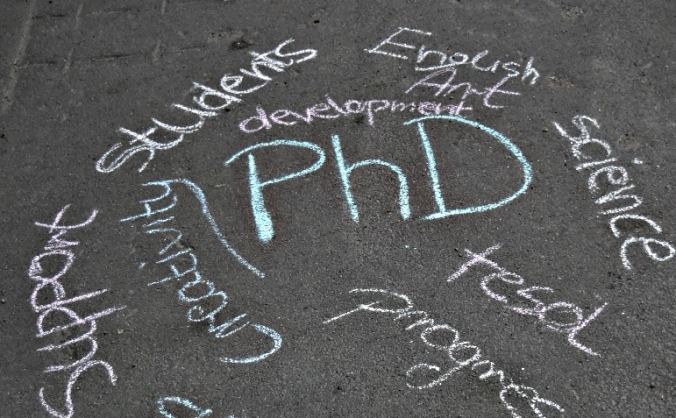 students
English
Art
development
PhD
science
creativity
support
tesol